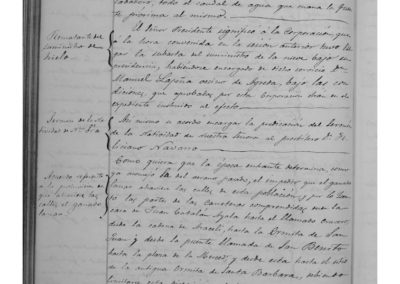 lavadero, todo el caudal de agua que mana la fuen
te próxima al mismo.
Remate de
suministro de
hielo.
El Señor Presidente significó a la Corporación, que
a la hora convenida en la sesión anterior tuvo lu
gar la subasta del suministro de la nieve bajo su
presidencia, habiéndose encargado de dicho servicio Dn.
Manuel Lapeña vecino de Agreda, bajo las con
diciones, que aprobadas por esta Corporacion obran en el
expediente instruido al efecto.
Sermon de la
Así mismo se acordó encargar la predicacion del Sermon
de la Natividad de nuestra Señora al presbitero Dn. Fe
liciano Navarro
Acuerdo referente
á la prohibicion de
que
calles, el ganado
lanar.
Como quiera que la época entrante determina, como
ya aconseja la del mismo pasado, el impedir que el ganado
lanar atraviese las calles de esta poblacion, y por lo tan
to las partes de las carreteras comprendidas, una la
casa de Juan Catalán Ayala hasta el llamado
desde la cadena de Araceli, hasta la Ermita de San
Juan y desde la puente llamada de San Benito
hasta la plaza de la Merced y desde esta hasta el sitio
de la antigua Ermita de Santa Barbara,